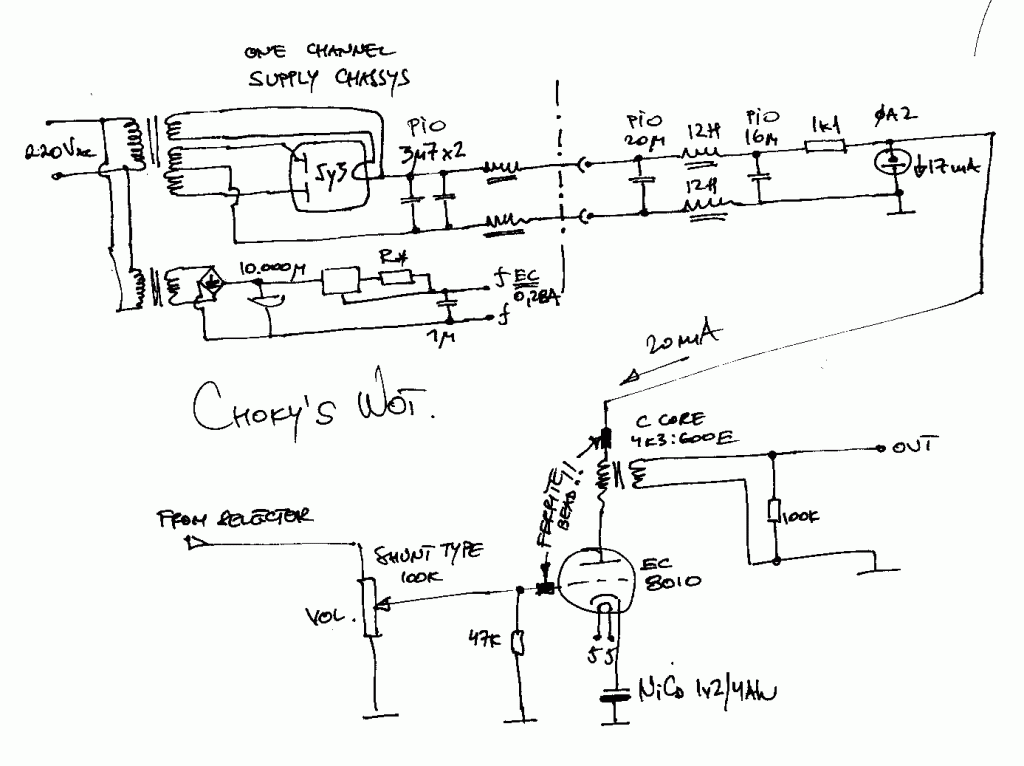 ONE CHANNEL
SUPPLY CHASSYS
220Vac
5y3
PiO
3µ7x2
PiO
20µ
12H
PiO
16µ
1k1
ØA2
17mA
12H
10.000µ
R*
f EC
0,28A
f
1µ
20mA
CHOKY'S WOT.
C CORE
4K3:600E
OUT
FERRITE
BEAD!!
100K
FROM SELECTOR
SHUNT TYPE
100K
VOL.
EC
8010
47K
NiCd 1v2/4Ah